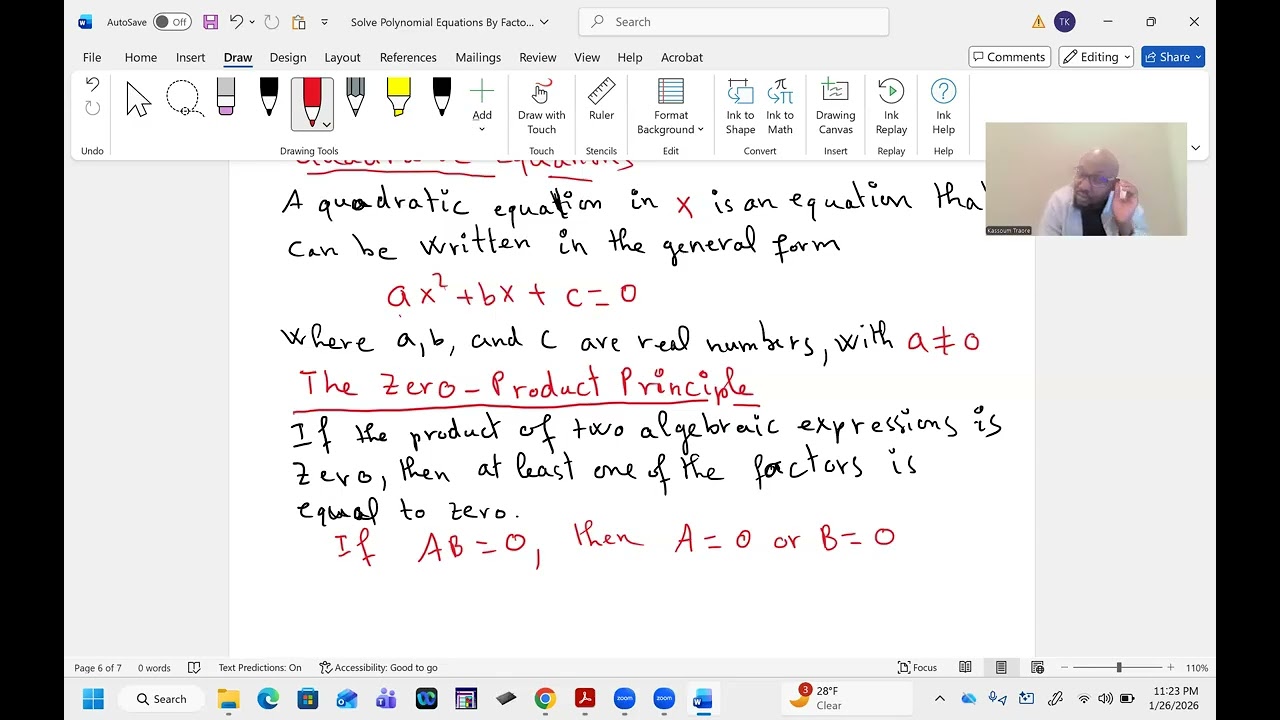 AutoSave Off Solve Polynomial Equations By Facto... Search TK
File Home Insert Draw Design Layout References Mailings Review View Help Acrobat Comments Editing Share
Add Draw with Touch Ruler Format Background Ink to Shape Ink to Math Drawing Canvas Ink Replay Ink Help
Undo Drawing Tools Touch Stencils Edit Convert Insert Replay Help
Quadratic Equations
A quadratic equation in x is an equation tha
can be written in the general form
ax²+bx+c=0
where a, b, and c are real numbers, with a≠0
The Zero-Product Principle
If the product of two algebraic expressions is
zero, then at least one of the factors is
equal to zero.
If AB=0, then A=0 or B=0
Kassoum Traore
Page 6 of 7 0 words Text Predictions: On Accessibility: Good to go Focus 110%
Search zoom zoom 3 28°F Clear 11:23 PM 1/26/2026